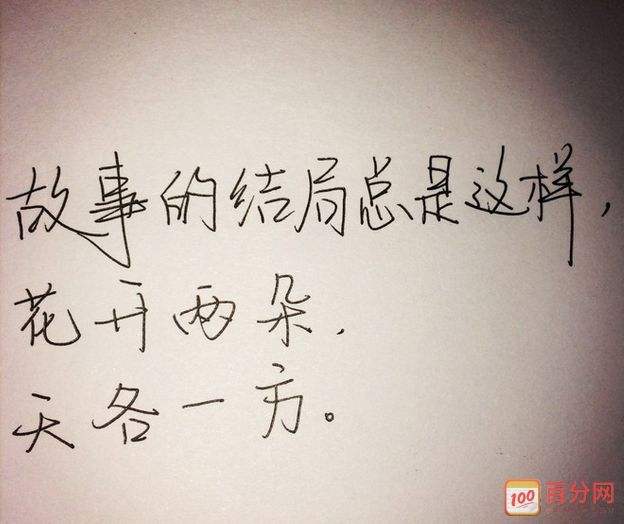 故事的结局总是这样，
花开两朵，
天各一方。
100 百分网